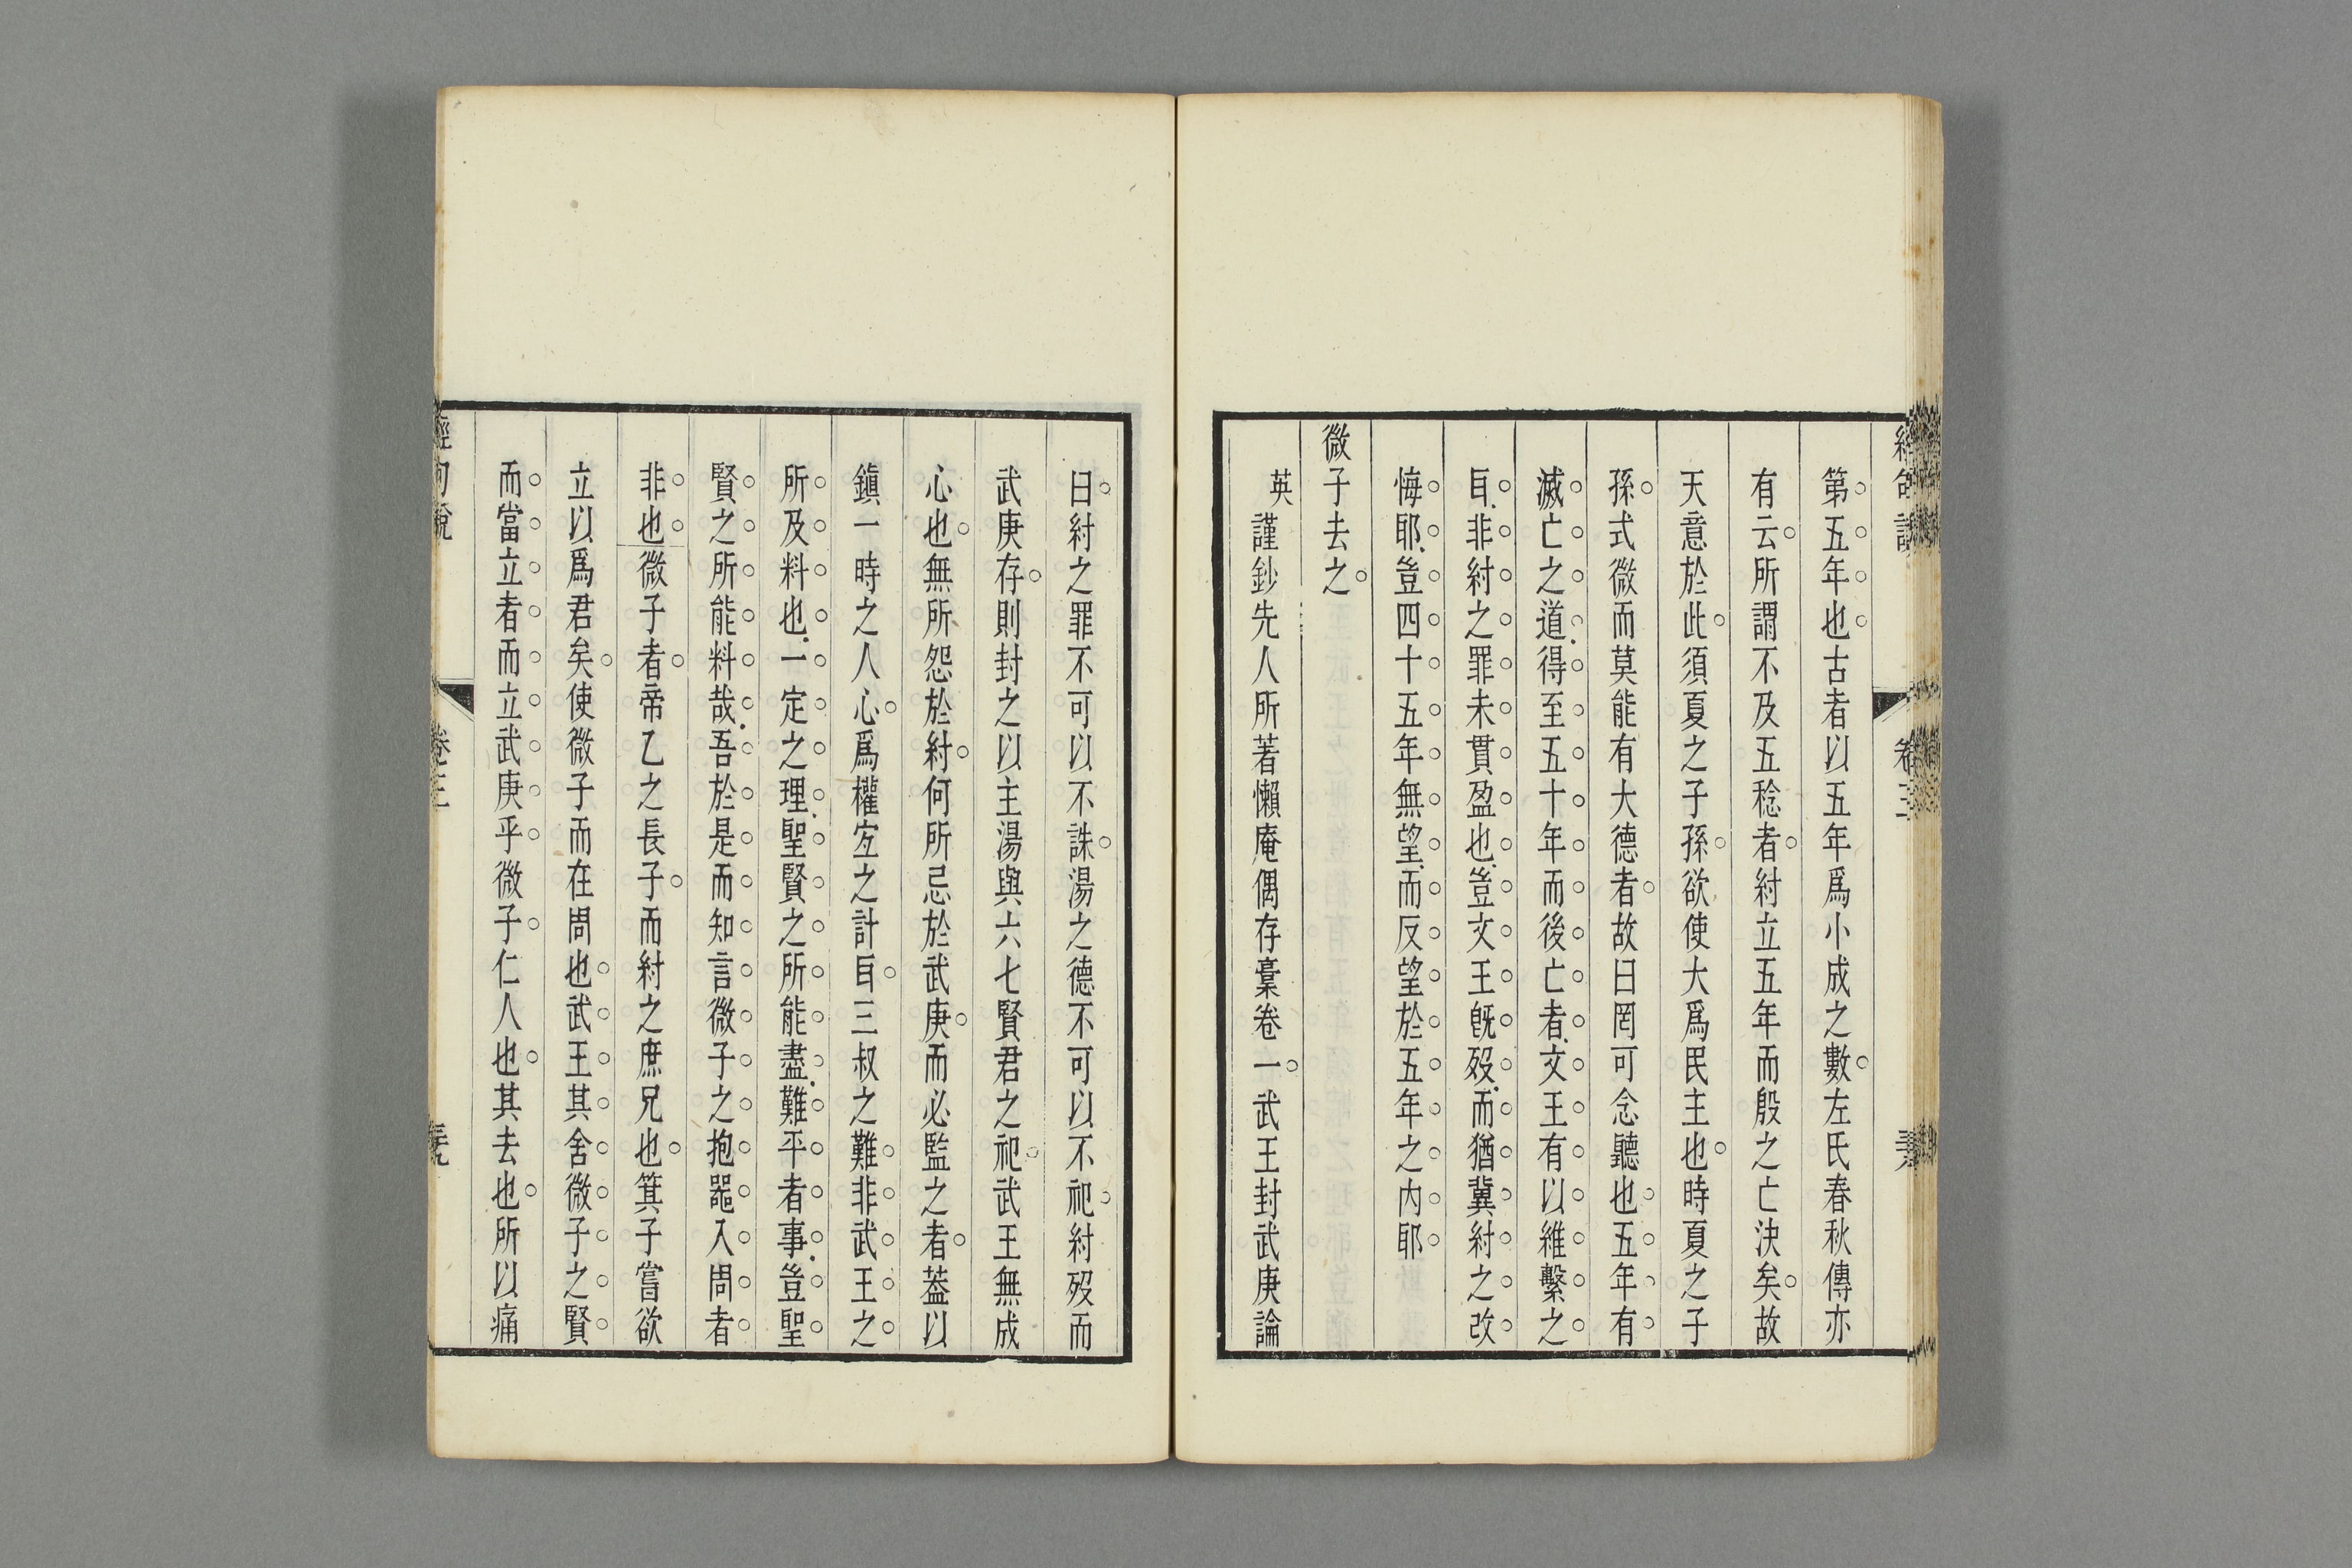 第五年也古者以五年爲小成之數左氏春秋傳亦
有云所謂不及五稔者紂立五年而殷之亡決矣故
天意於此須夏之子孫欲使大爲民主也時夏之子
孫式微而莫能有大德者故曰罔可念聽也五年有
滅亡之道得至五十年而後亡者文王有以維繫之
㠯非紂之罪未貫盈也豈文王旣歿而猶冀紂之改
悔耶豈四十五年無望而反望於五年之內耶
微子去之
英謹鈔先人所著懶庵偶存稾卷一武王封武庚論
曰紂之罪不可以不誅湯之德不可以不祀紂歿而
武庚存則封之以主湯與六七賢君之祀武王無成
心也無所怨於紂何所忌於武庚而必監之者葢以
鎭一時之人心爲權宐之計㠯三叔之難非武王之
所及料也一定之理聖賢之所能盡難平者事豈聖
賢之所能料哉吾於是而知言微子之抱噐入周者
非也微子者帝乙之長子而紂之庶兄也箕子嘗欲
立以爲君矣使微子而在周也武王其舍微子之賢
而當立者而立武庚乎微子仁人也其去也所以痛
經句說
卷三